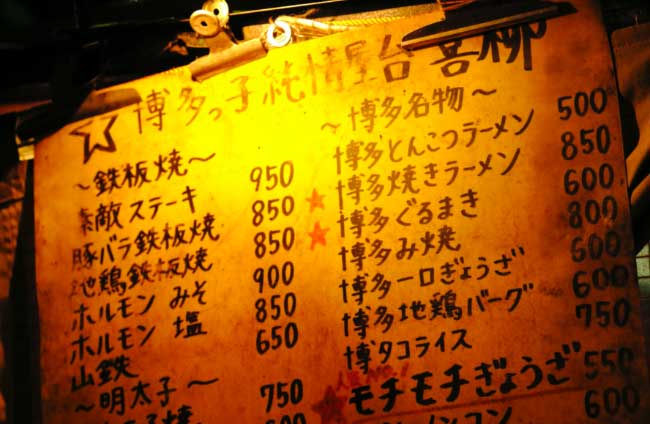 博多っ子純情屋台 喜柳
~鉄板焼~
素敵ステーキ 950
豚バラ鉄板焼 850
地鶏鉄板焼 850
ホルモン みそ 900
ホルモン 塩 850
山鉄 650
~明太子~
子焼 750
~博多名物~
博多とんこつラーメン 500
博多焼きラーメン 850
博多ぐるまき 600
博多み焼 800
博多一口ぎょうざ 600
博多地鶏バーグ 600
博タコライス 750
人気No.1
モチモチぎょうざ 550
600